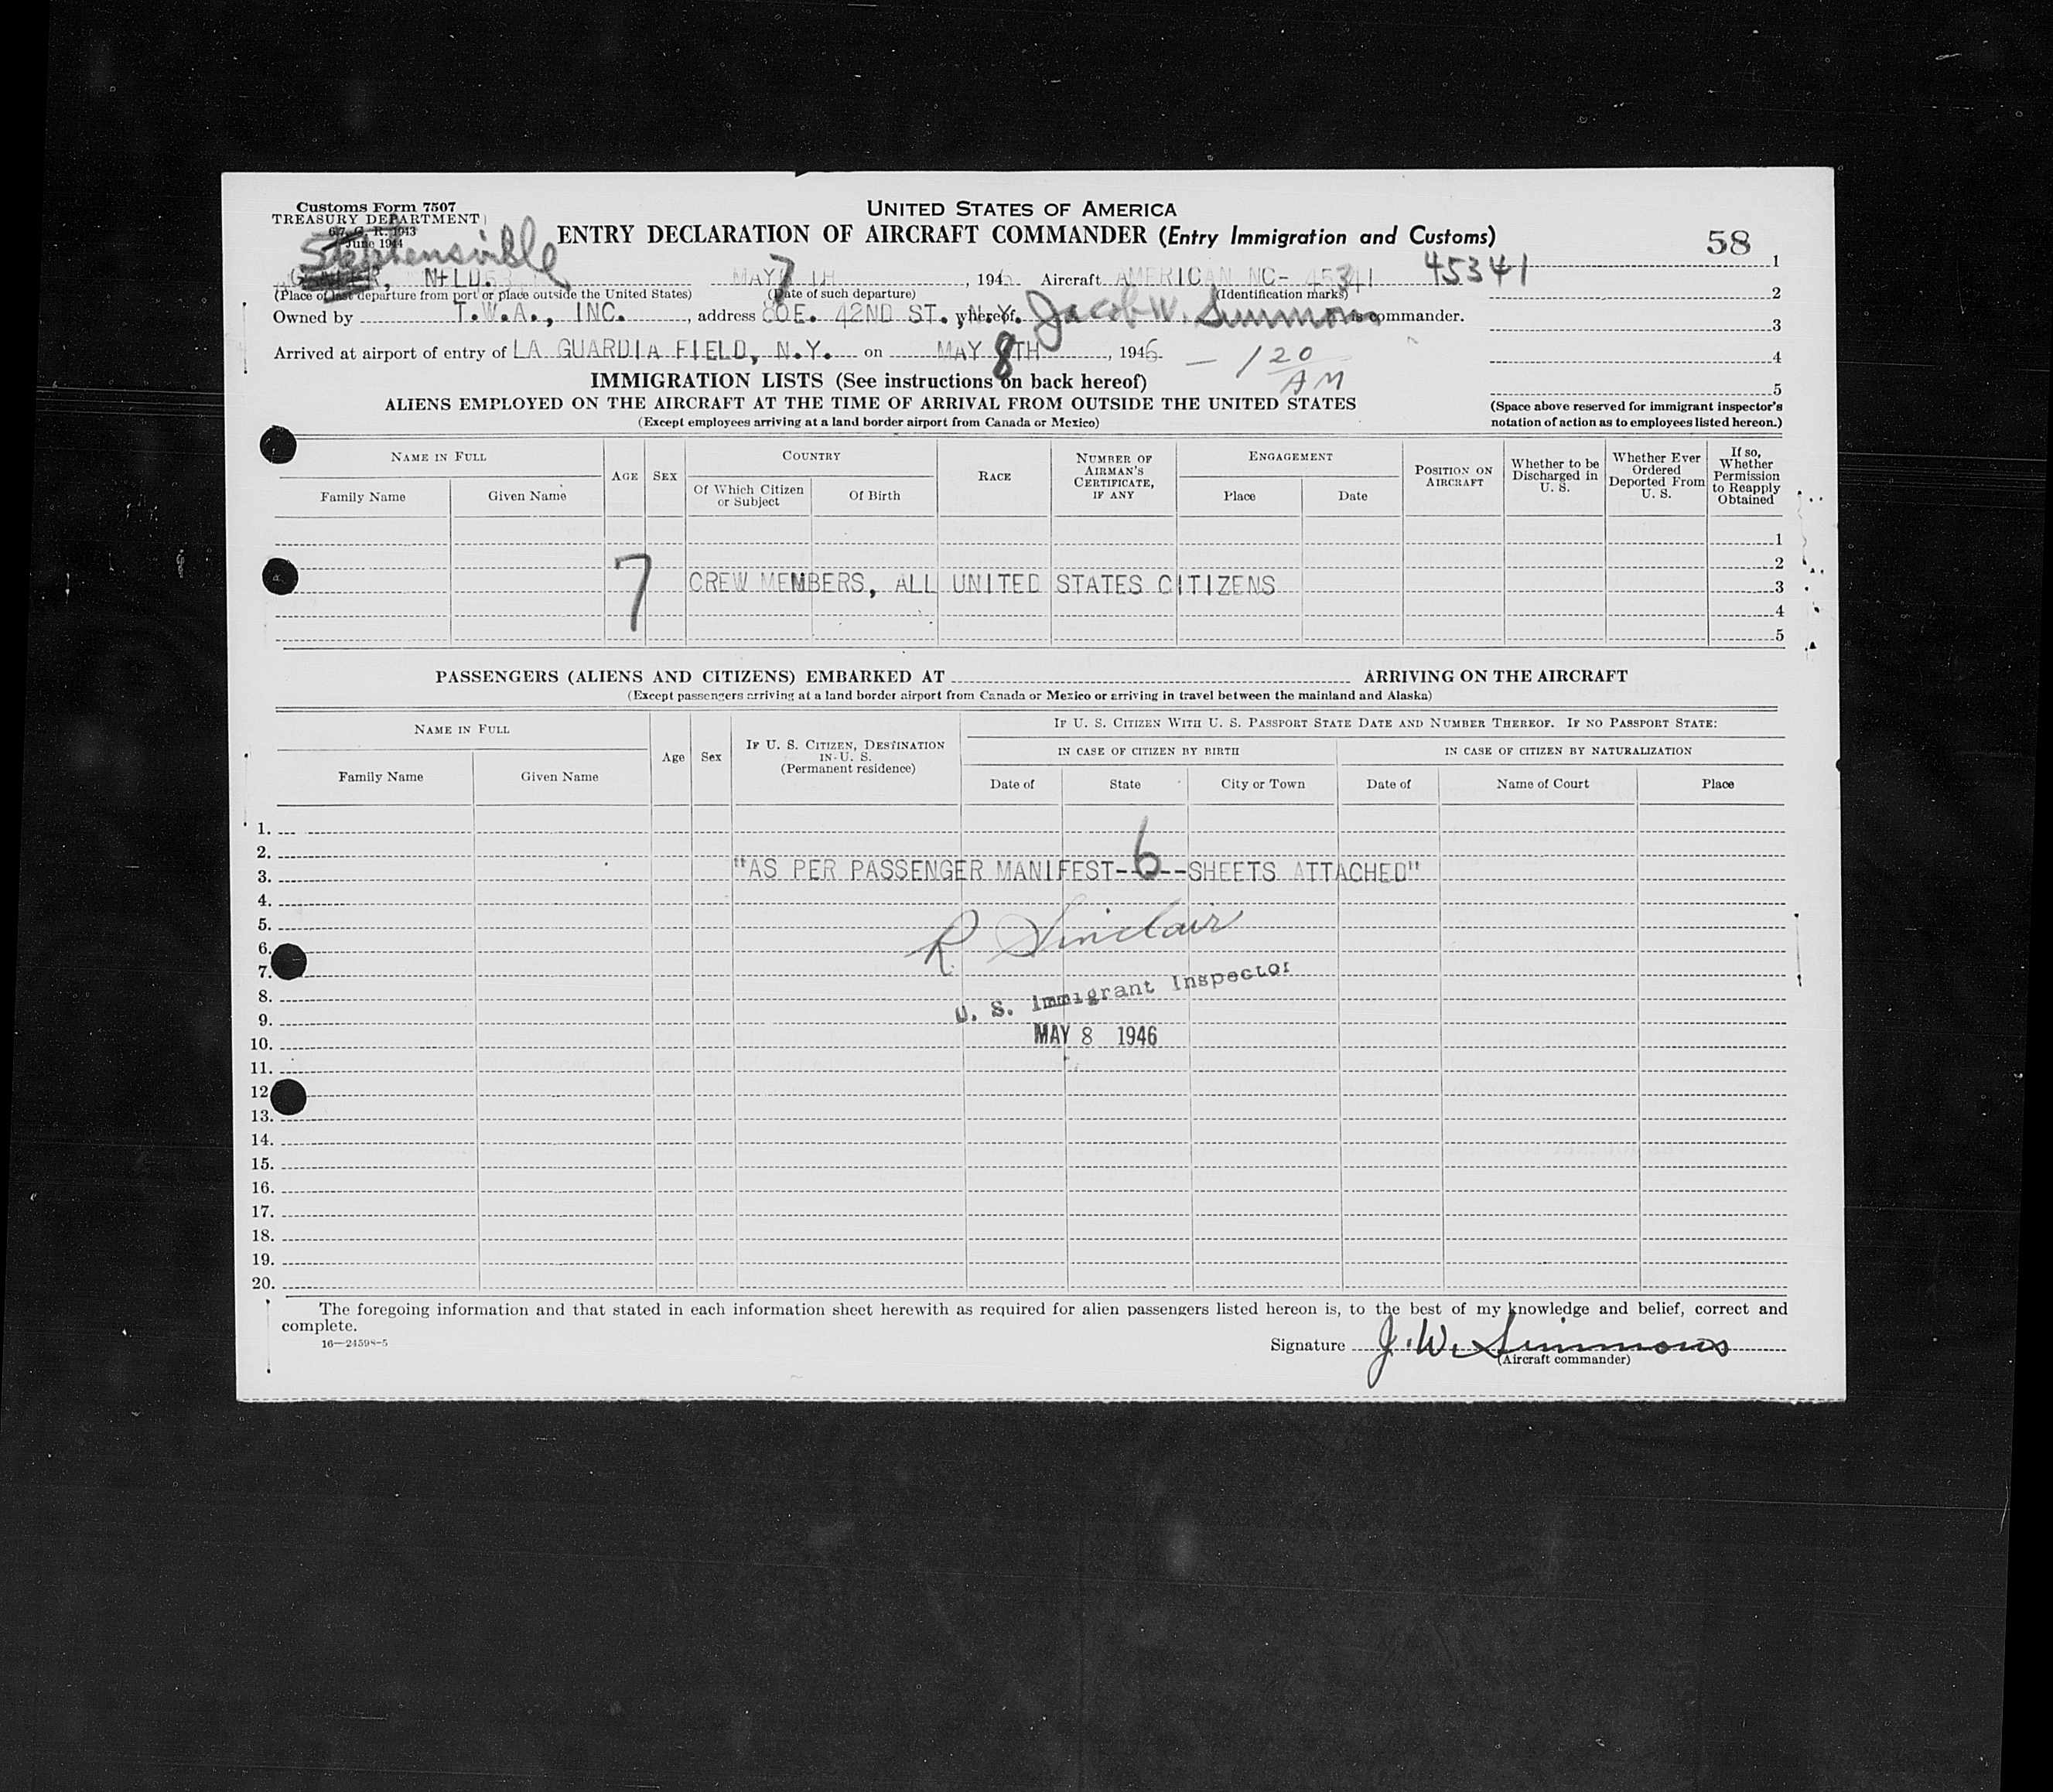 Customs Form 7507
TREASURY DEPARTMENT
June 1944
UNITED STATES OF AMERICA
ENTRY DECLARATION OF AIRCRAFT COMMANDER (Entry Immigration and Customs)
58
Stephensville
NFLD. MAY 7TH, 1946 Aircraft AMERICAN NC- 45341 45341 1
(Place of last departure from port or place outside the United States) (Date of such departure) (Identification marks)
2
Owned by T.W.A., INC., address 80E. 42ND ST., N.Y. whereof Jacob W. Simmons is commander.
3
Arrived at airport of entry of LA GUARDIA FIELD, N.Y. on MAY 8TH, 1946 - 1 20 AM
4
IMMIGRATION LISTS (See instructions on back hereof)
5
ALIENS EMPLOYED ON THE AIRCRAFT AT THE TIME OF ARRIVAL FROM OUTSIDE THE UNITED STATES
(Space above reserved for immigrant inspector's
notation of action as to employees listed hereon.)
(Except employees arriving at a land border airport from Canada or Mexico)
NAME IN FULL
Family Name
Given Name
AGE
SEX
COUNTRY
Of Which Citizen or Subject
Of Birth
RACE
NUMBER OF AIRMAN'S CERTIFICATE, IF ANY
ENGAGEMENT
Place
Date
POSITION ON AIRCRAFT
Whether to be Discharged in U. S.
Whether Ever Ordered Deported From U. S.
If so, Whether Permission to Reapply Obtained
1
2
7 CREW MEMBERS, ALL UNITED STATES CITIZENS 3
4
5
PASSENGERS (ALIENS AND CITIZENS) EMBARKED AT ARRIVING ON THE AIRCRAFT
(Except passengers arriving at a land border airport from Canada or Mexico or arriving in travel between the mainland and Alaska)
NAME IN FULL
Family Name
Given Name
Age
Sex
IF U. S. CITIZEN, DESTINATION IN U. S. (Permanent residence)
IF U. S. CITIZEN WITH U. S. PASSPORT STATE DATE AND NUMBER THEREOF. IF NO PASSPORT STATE:
IN CASE OF CITIZEN BY BIRTH
Date of
State
City or Town
IN CASE OF CITIZEN BY NATURALIZATION
Date of
Name of Court
Place
1.
2.
"AS PER PASSENGER MANIFEST--6--SHEETS ATTACHED"
3.
4.
5.
R Sinclair
6.
7.
8.
U. S. Immigrant Inspector
9.
MAY 8 1946
10.
11.
12
13.
14.
15.
16.
17.
18.
19.
20.
The foregoing information and that stated in each information sheet herewith as required for alien passengers listed hereon is, to the best of my knowledge and belief, correct and
complete.
16—24598-5
Signature J. W. Simmons
(Aircraft commander)